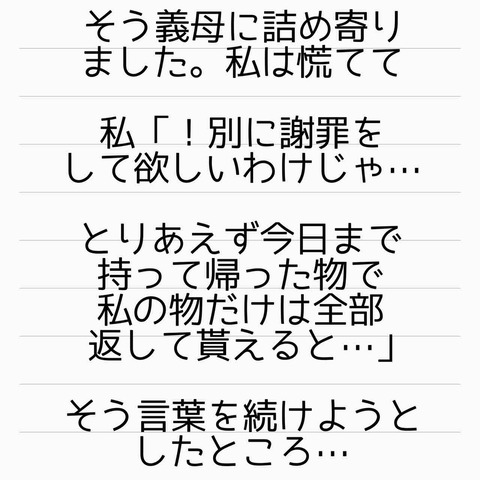 そう義母に詰め寄り
ました。私は慌てて
私「！別に謝罪を
して欲しいわけじゃ…
とりあえず今日まで
持って帰った物で
私の物だけは全部
返して貰えると…」
そう言葉を続けようと
したところ…